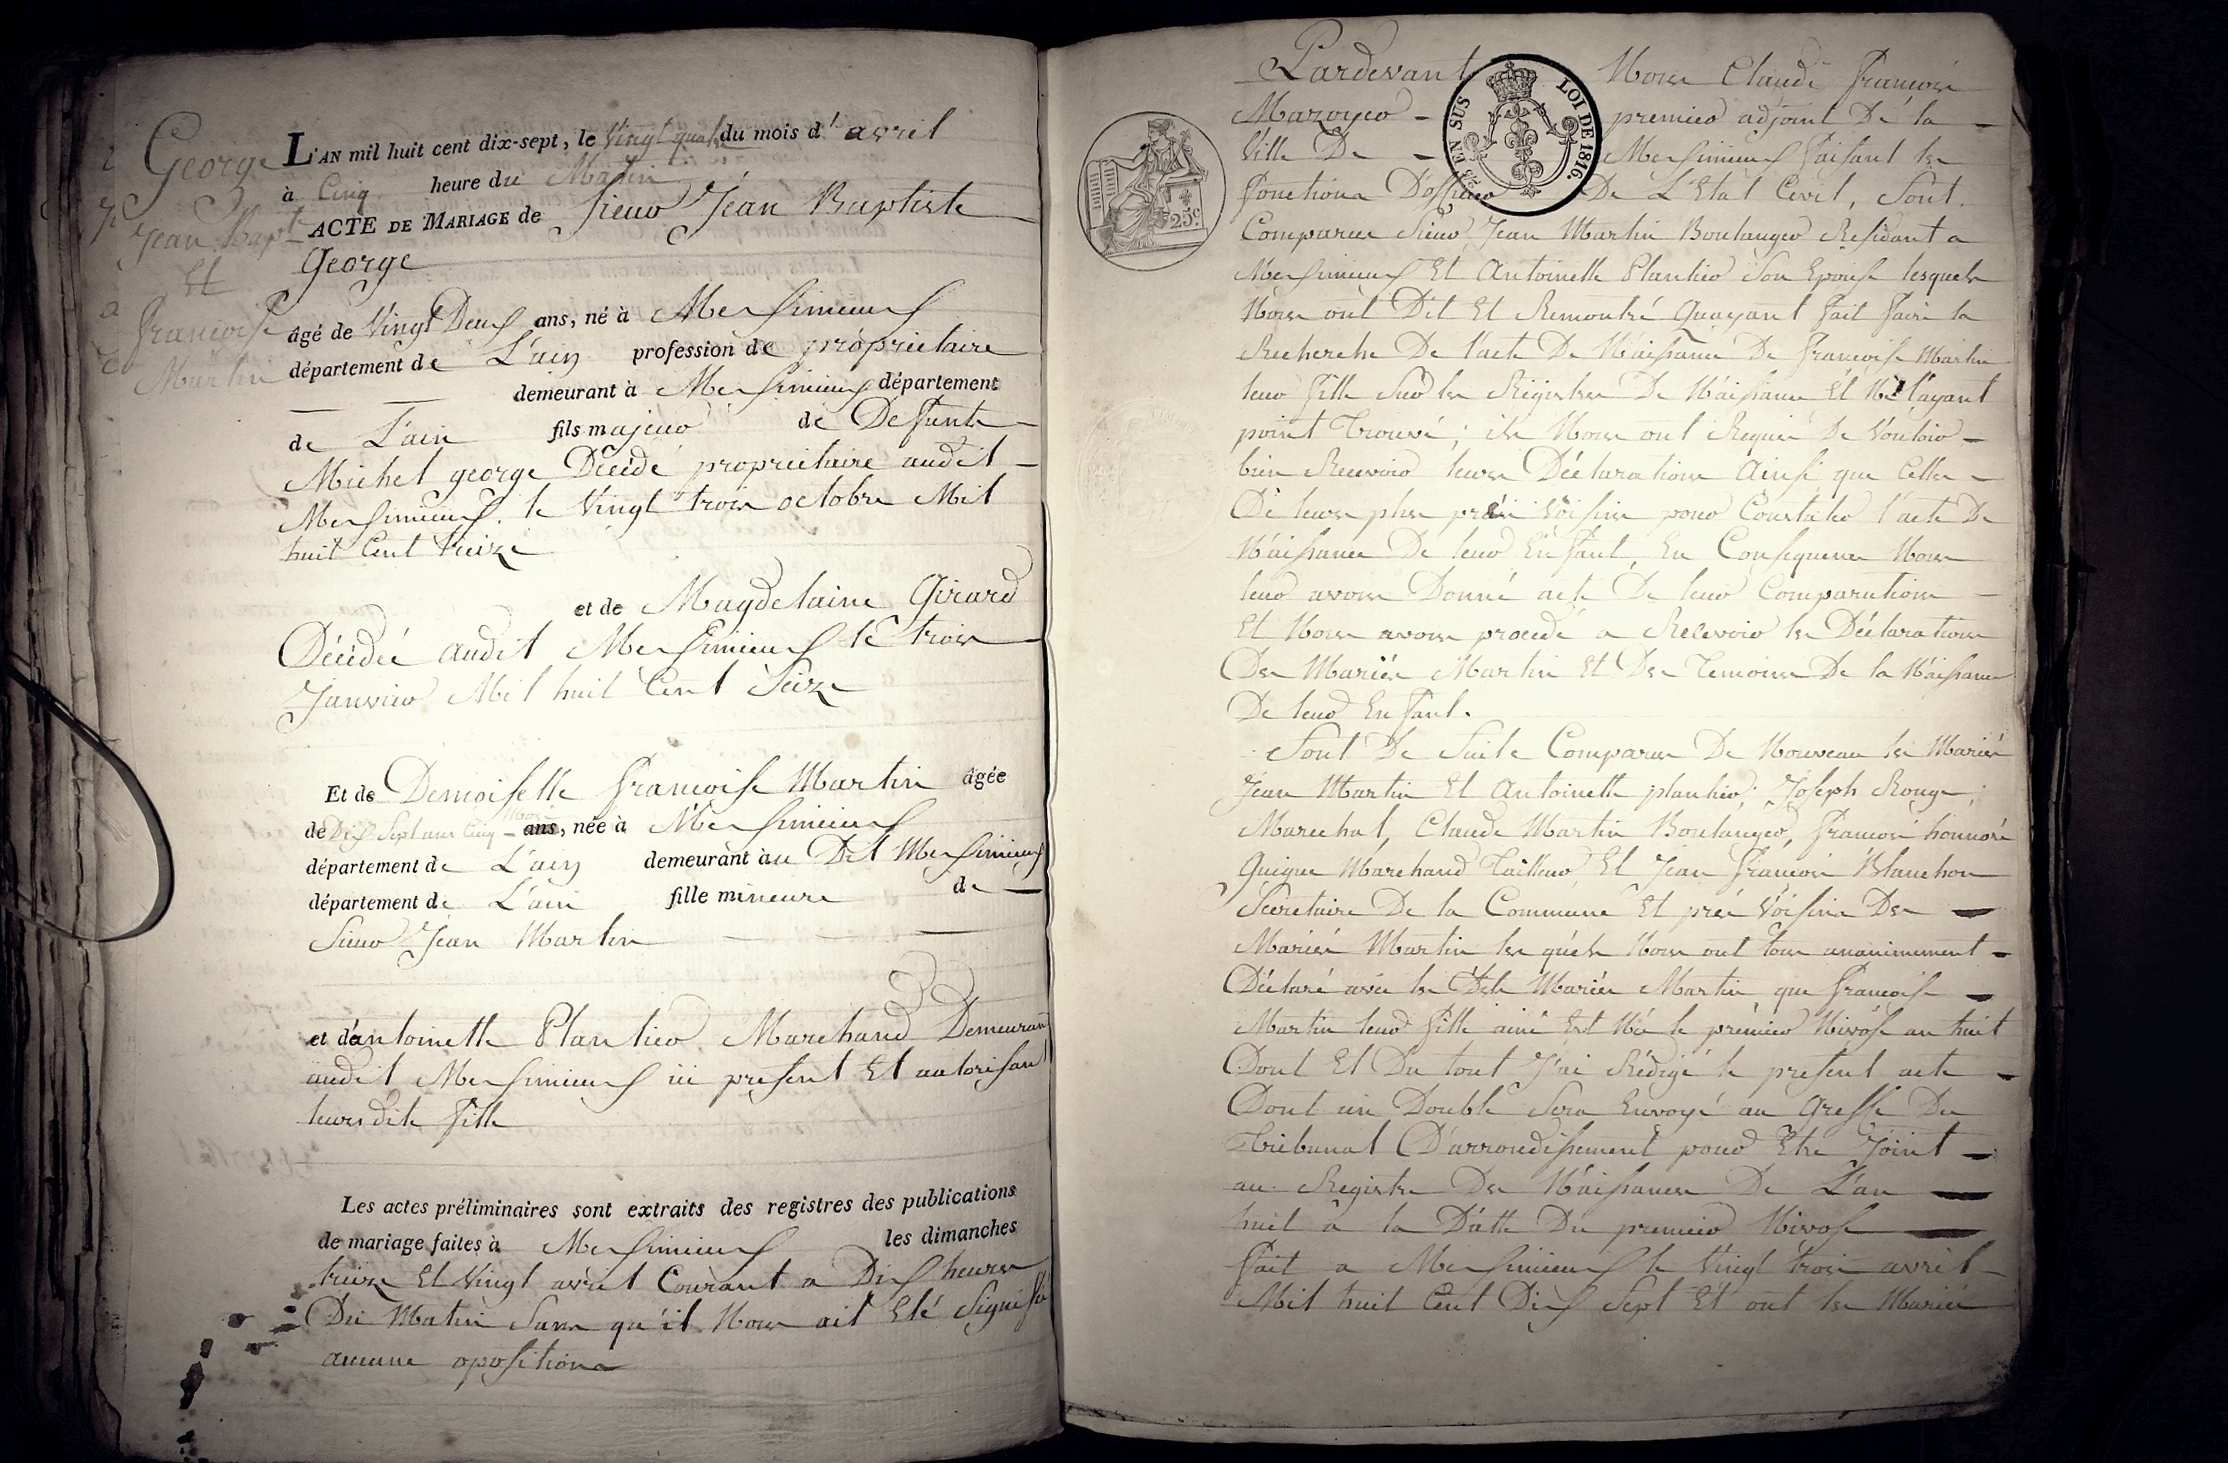 George
Jean Bapte
Et
Françoise
Martin
L'AN mil huit cent dix-sept, le Vingt quatre du mois d'avril
à Cinq heure du Matin
ACTE DE MARIAGE de Sieur Jean Baptiste
George
âgé de Vingt Deux ans, né à Meximieux
département de L'ain profession de propriétaire
demeurant à Meximieux département
de L'ain fils majeur de Defunts
Michel george Décédé propriétaire audit
Meximieux le Vingt trois octobre Mil
huit Cent treize
et de Magdelaine Girard
Décédée audit Meximieux le trois
Janvier Mil huit Cent Seize
Et de Demoiselle françoise Martin âgée
de Dix Sept ans Cinq mois ans, née à Meximieux
département de L'ain demeurant au Dit Meximieux
département de L'ain fille mineure de
Sieur Jean Martin
et d'antoinette Plantier Marchand Demeurant
audit Meximieux ici présent Et autorisant
leurdite fille
Les actes préliminaires sont extraits des registres des publications
de mariage faites à Meximieux les dimanches
treize Et Vingt avril Courant a Dix heures
Du Matin Sans qu'il Nous ait Eté Signifié
aucune oposition
Pardevant Nous Claude françois
Mazoyer premier adjoint De la
Ville De Meximieux faisant les
25 EN SUS LOI DE 1816.
25c
fonctions D'officier De L'Etat Civil, Sont
Comparus Sieur Jean Martin Boulanger Residant a
Meximieux Et Antoinette Plantier Son Epouse lesquels
Nous ont Dit Et Remontré Quayant fait faire la
Recherche De l'acte De Naissance De françoise Martin
leur fille Sur les Régistres De Naissance Et Ne l'ayant
point Trouvé; ils Nous ont Requis De Vouloir
bien Recevoir leurs Déclarations Ainsi que Celles
De leurs plus près Voisins pour Constater l'acte De
Naissance De leur Enfant, En Consequence Nous
leur avons Donné acte De leur Comparution
Et Nous avons procedé a Recevoir les Déclarations
Des Mariés Martin Et Des Temoins De la Naissance
De leur Enfant.
Sont De Suite Comparus De Nouveau les Mariés
Jean Martin Et Antoinette plantier; Joseph Rouge,
Marechal, Claude Martin Boulanger, françois honnoré
Guigue Marchand Tailleur Et Jean françois Blanchon
Sécretaire De la Commune Et près Voisins Des
Mariés Martin les quels Nous ont tous unanimement
Déclaré avec les Dits Mariés Martin que françoise
Martin leur fille ainé Est Né le premier Nivôse an huit
Dont Et Du tout J'ai Rédigé le présent acte
Dont un Double Sera Envoyé au Greffe Du
Tribunal D'arrondissement pour Etre Joint
au Registre Des Naissances De L'an
huit à la Datte Du premier Nivose
fait a Meximieux le Vingt trois avril
Mil huit Cent Dix Sept Et ont les Mariés